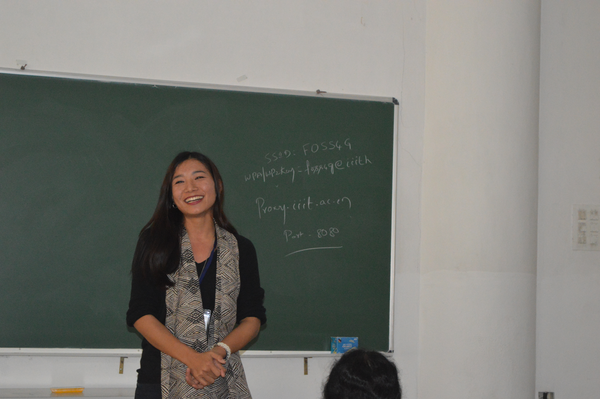 SSID: FOSS4G
wpa/wpa2key - fossg@iiith
Proxy.iiit.ac.in
Port - 8080